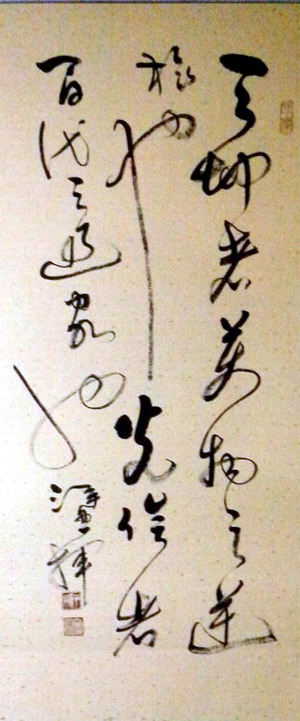 天地者萬物之逆
旅也光陰者
百代之過客也